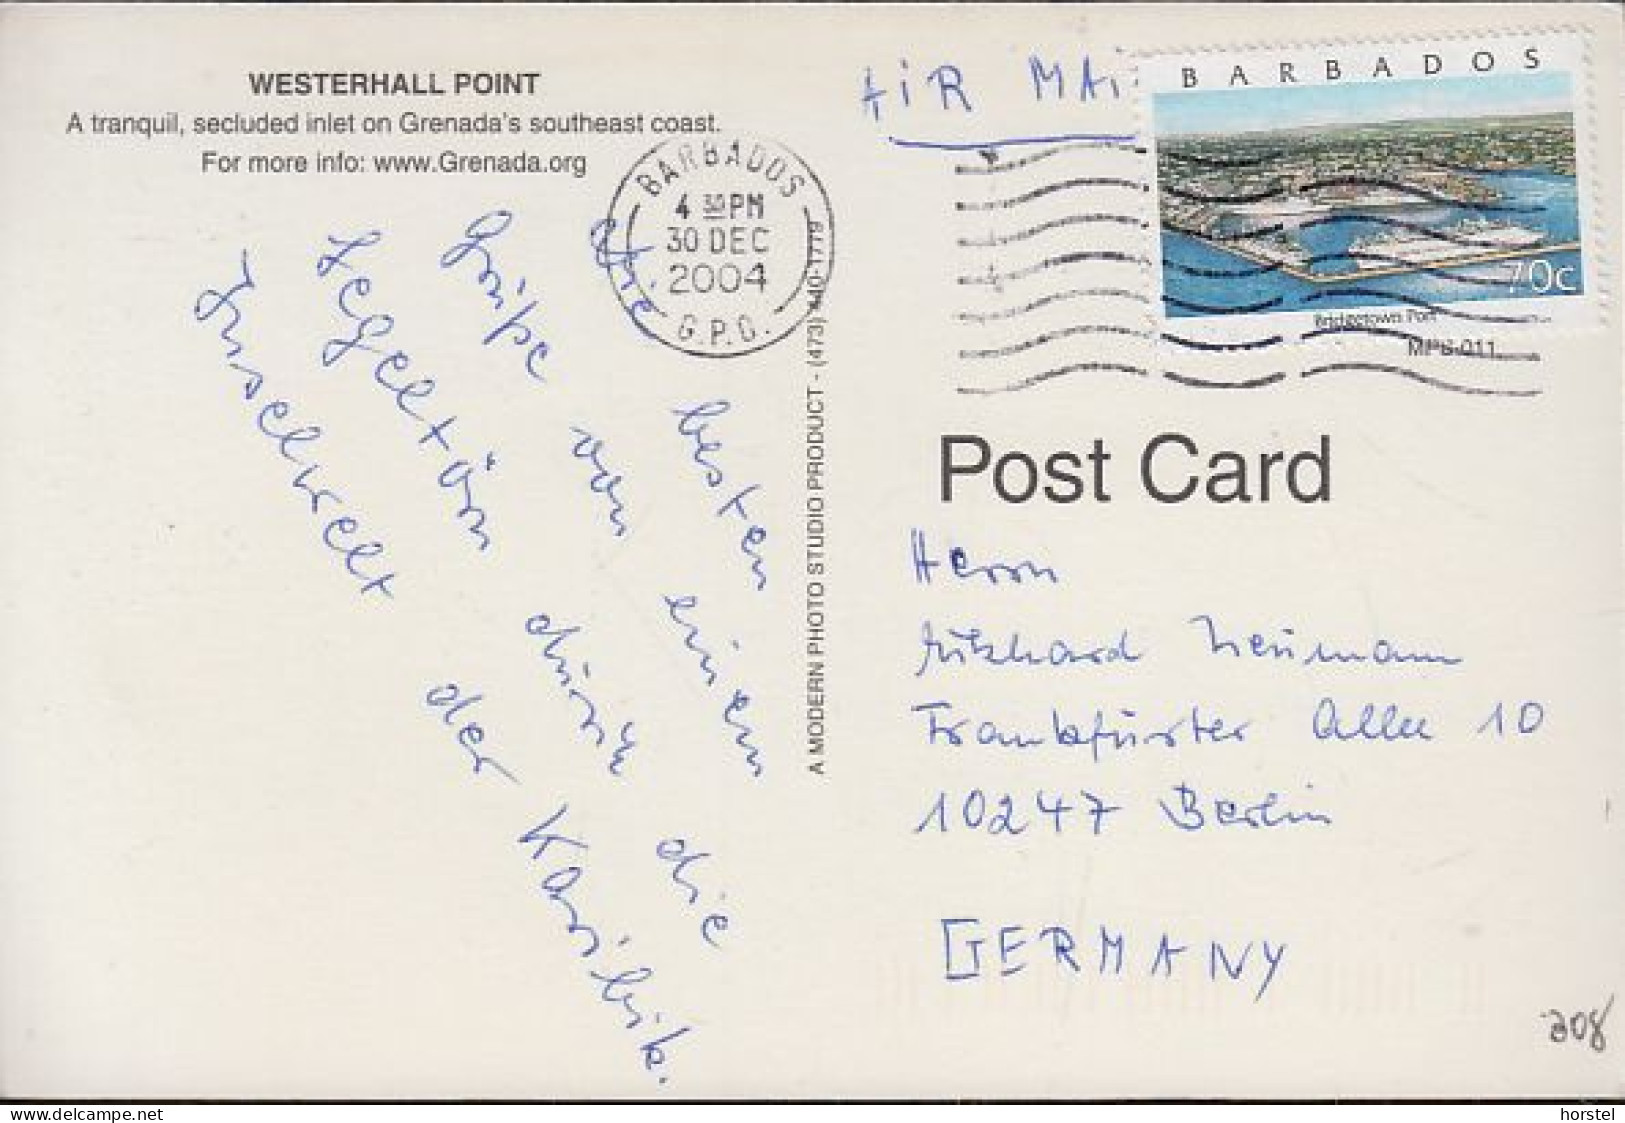 WESTERHALL POINT
A tranquil, secluded inlet on Grenada's southeast coast.
For more info: www.Grenada.org
AIR MAI
BARBADOS
70c
Bridgetown Port
MPB 011
BARBADOS
4 30 PM
30 DEC
2004
G.P.O.
Die besten
Grüße von einem
Segeltörn durch die
Inselwelt der Karibik.
A MODERN PHOTO STUDIO PRODUCT - (473) 440-1779
Post Card
Herrn
Neumann
Frankfurter Allee 10
10247 Berlin
GERMANY
308
www.delcampe.net
horstel